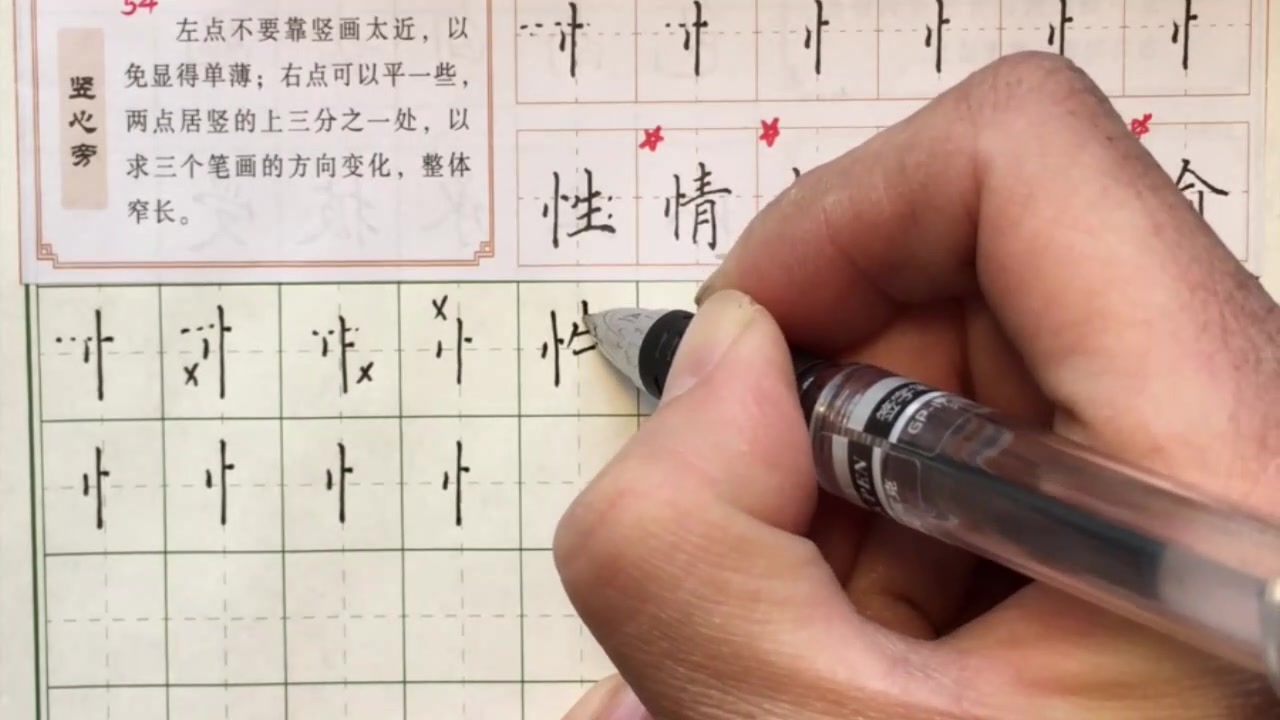 54
竖心旁
左点不要靠竖画太近，以
免显得单薄；右点可以平一些，
两点居竖的上三分之一处，以
求三个笔画的方向变化，整体
窄长。
忄 忄 忄 忄 忄 忄
性 情
忄 忄 忄 忄
x x x
忄 忄 忄 忄
签字笔
GP-
PEN